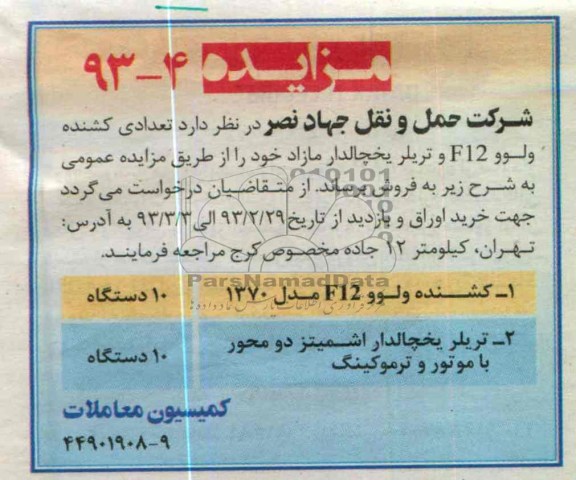 مزایده ۴-۹۳
شرکت حمل و نقل جهاد نصر در نظر دارد تعدادی کشنده
ولوو F12 و تریلر یخچالدار مازاد خود را از طریق مزایده عمومی
به شرح زیر به فروش برساند. از متقاضیان درخواست می‌گردد
جهت خرید اوراق و بازدید از تاریخ ۹۳/۲/۲۹ الی ۹۳/۳/۳ به آدرس:
تهران، کیلومتر ۱۲ جاده مخصوص کرج مراجعه فرمایند.
ParsNamadData
۱- کشنده ولوو F12 مدل ۱۳۷۰ ۱۰ دستگاه
۲- تریلر یخچالدار اشمیتز دو محور ۱۰ دستگاه
با موتور و ترموکینگ
کمیسیون معاملات
۴۴۹۰۱۹۰۸-۹